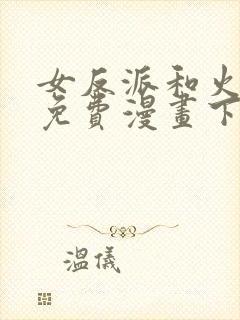 女反派和火
免費漫畫下
溫儀